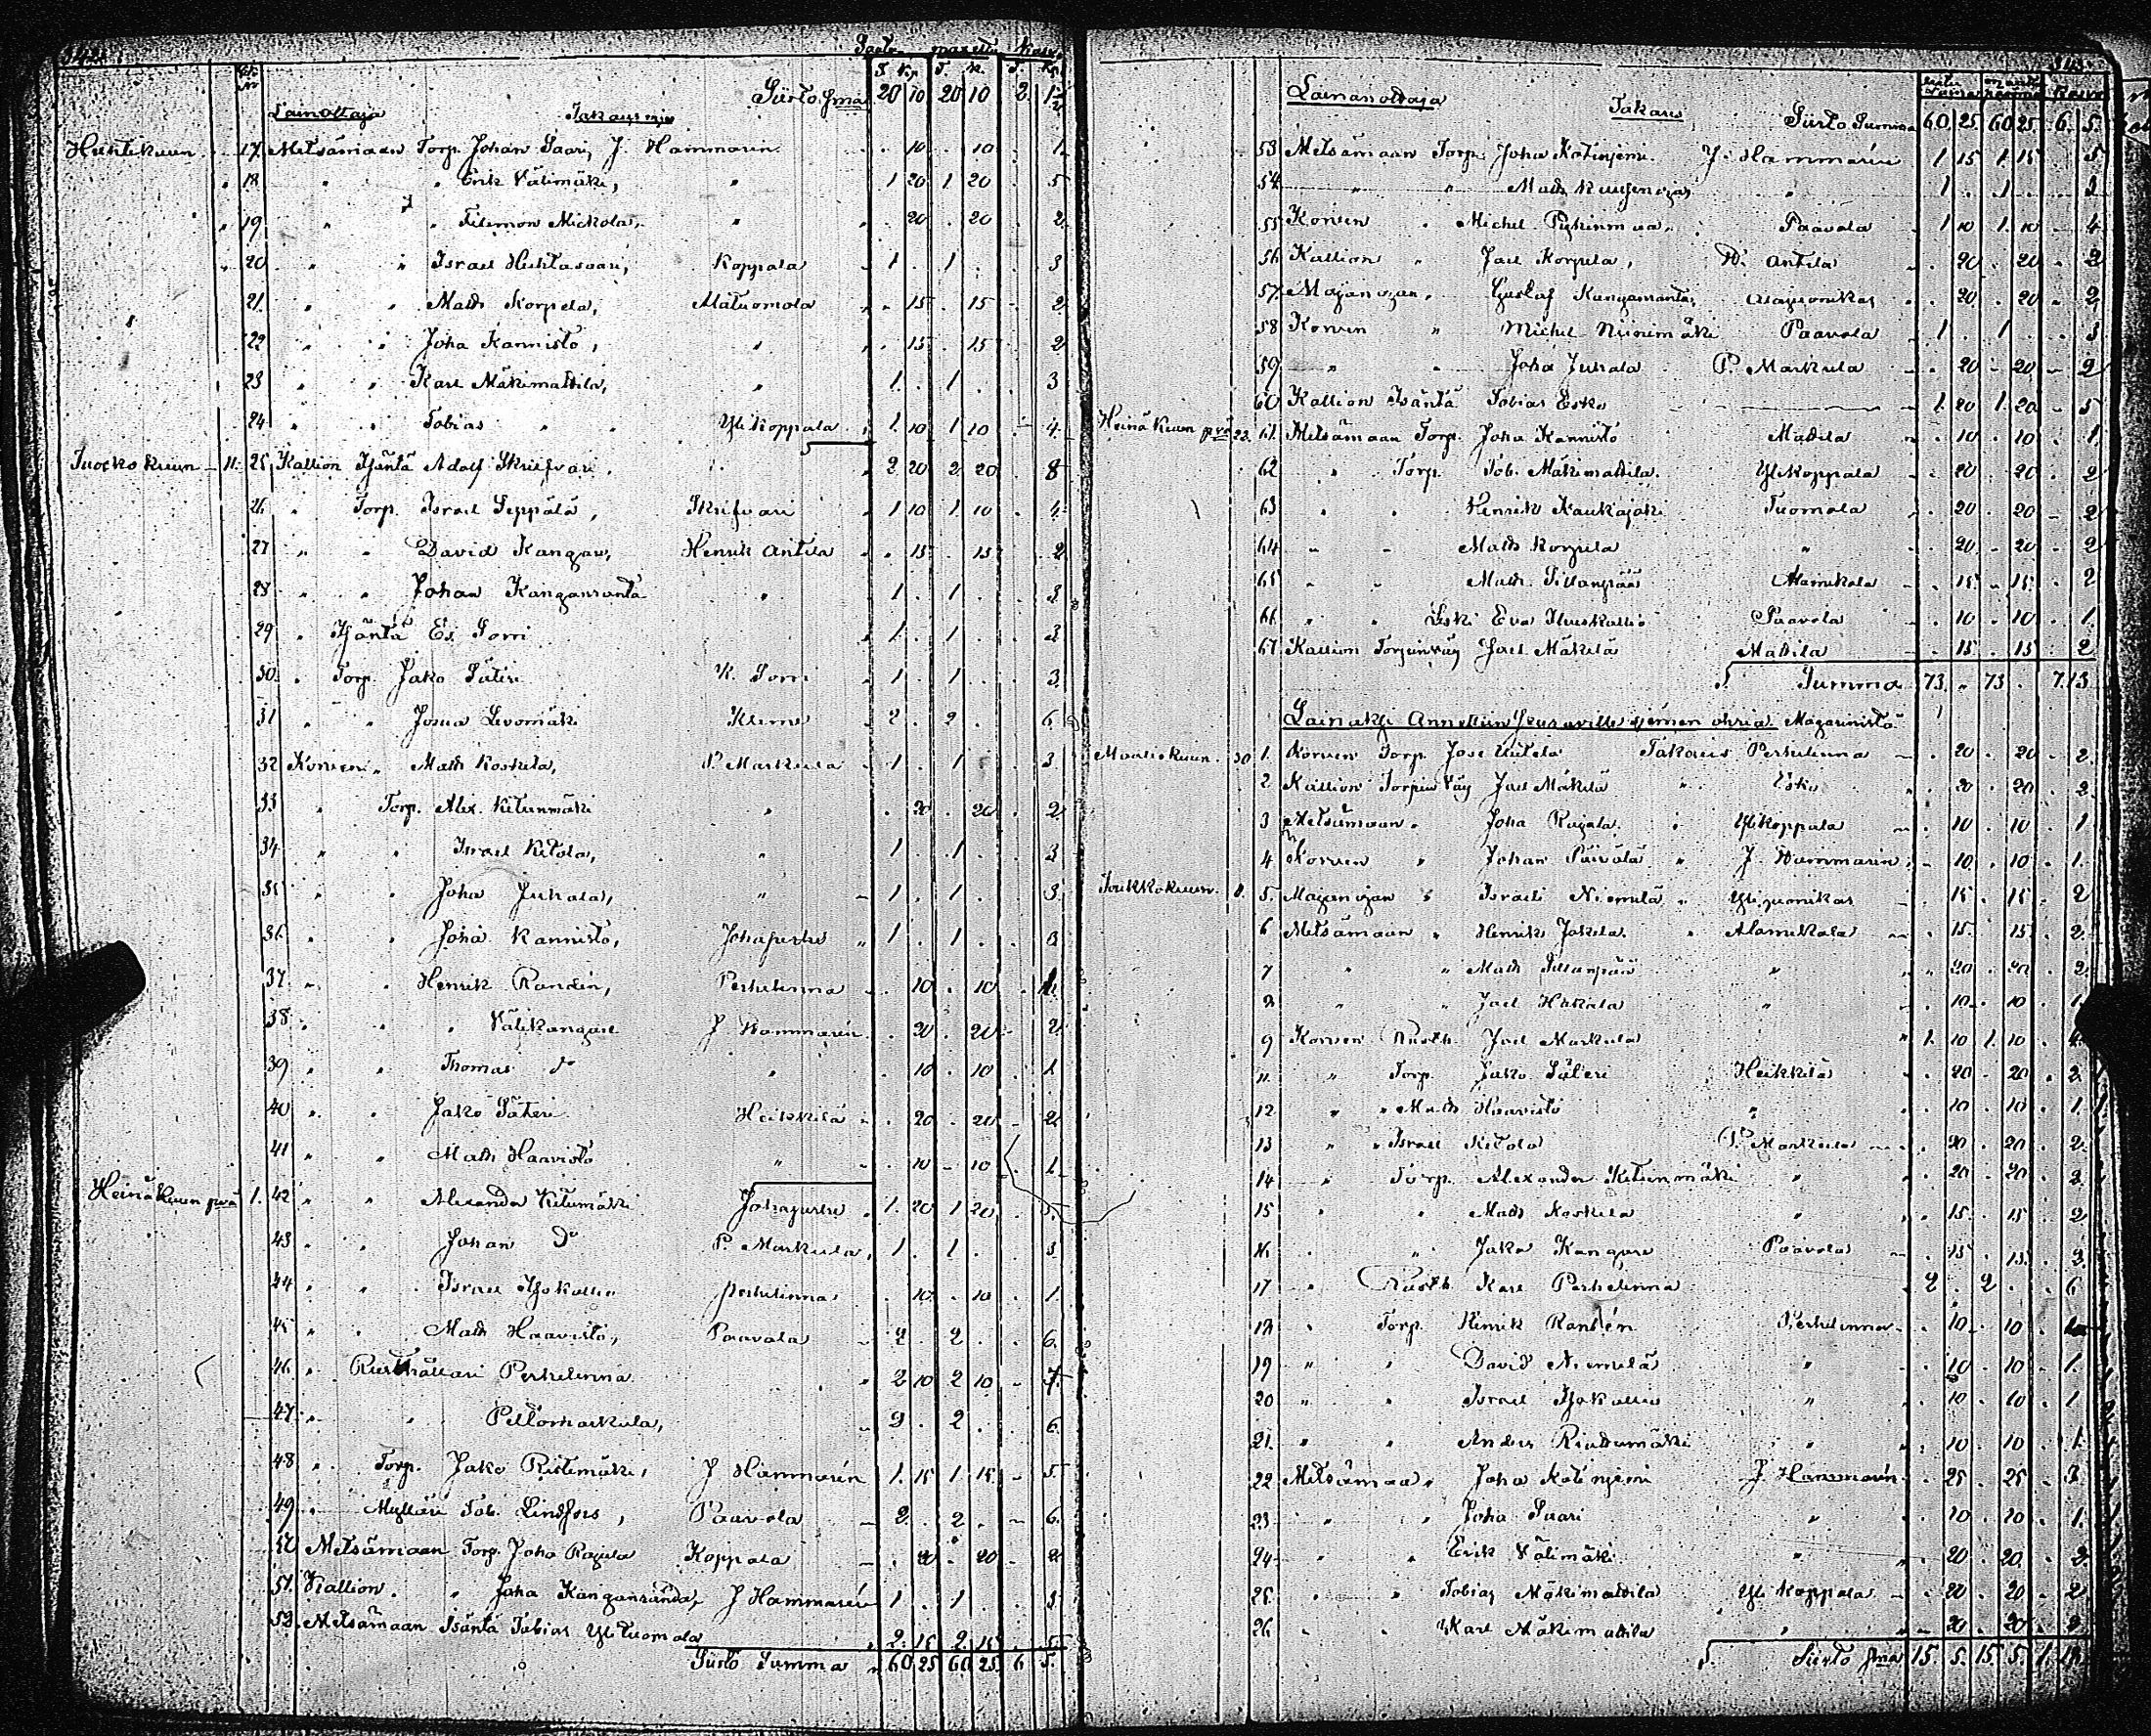 342
Laina maxettu Kasvo
T. Kp. T. K. T. K.
Lainottaja Takausmies Siirto Sma 20 10 20 10 2. 1 1/2
Huhtikuun 17 Metsämaan Torp. Johan Saari, J. Hammarin . 10 . 10 . 1
" 18 " " Erik Välimäki, " 1 20 1 20 . 5
" 19 " " Filemon Mickola, " . 20 . 20 . 2
" 20 " " Israel Huhtasaari, Koppala 1 . 1 . . 3
21 " " Math Korpela, Alatuomola . 15 . 15 . 2
22 " " Joha Kannisto, " . 15 . 15 . 2
23 " " Karl Mäkimattila, " 1 . 1 . . 3
24 " " Tobias " Yli Koppala 1 10 1 10 . 4
Tuockokuun 11. 25 Kallion Isäntä Adolf Skrifvari 2 20 2 20 . 8
26 " Torp. Israel Seppälä, Skrifvari 1 10 1 10 . 4
27 " " David Kangas, Henrik Antila . 15 . 15 . 2
28 " " Johan Kanganranta " 1 . 1 . . 3
29 " Isäntä Es. Sorri 1 . 1 . . 3
30 " Torp. Jako Säteri K. Sorri 1 . 1 . . 3
31 " " Josua Levomäki Klemo 2 . 2 . . 6
32 Korven " Math Koskela, P. Markula 1 . 1 . . 3
33 " Torp. Alex. Kitunmäki " . 20 . 20 . 2
34 " " Israel Kitola, " 1 . 1 . . 3
35 " " Joha Juhala, " 1 . 1 . . 3
36 " " Joha Kannisto, Johapertu 1 . 1 . . 3
37 " " Henrik Randin, Perhelinna . 10 . 10 . 1
38 " " " Välikangas J Hammarin . 20 . 20 . 2
39 " " Thomas do " . 10 . 10 . 1
40 " " Jako Säteri Heikkilä . 20 . 20 . 2
41 " " Math Haavisto " . 10 . 10 . 1
Heinäkuun pvä 1. 42 " " Alexander Kitumäki Johapertu 1. 20 1 20 . 5
43 " " Johan do P. Markula, 1 . 1 . . 3
44 " " Israel Isokallio perhelinna . 10 . 10 . 1
45 " " Math Haavisto, Paavola 2 . 2 . . 6
46 " Rusthållari Perhelinna 2 10 2 10 . 7
47 " " Peltomarkula, 2 . 2 . . 6
48 " Torp. Jako Ristimäki, J Hammarén 1. 15 1 15 . 5
49 " Mylläri Tob. Lindfors, Paavola 2. . 2 . . 6
50 Metsämaan Torp. Joha Rajala Koppala . 20 . 20 . 2
51 Kallion " Joha Kanganranda, J Hammarén 1 . 1 . . 3
52 Metsämaan Isäntä Tobias Yli Tuomola 2. 15 2 15 . 5
Siirto Summa 60 25 60 25 6 5.
343
Lainanottaja Takaus Siirto Summa 60. 25 60 25 6. 5.
53 Metsämaan Torp. Joha Katinjemi J. Hammarén 1 15 1 15 . 5
54 " " Math Kuusenoja, " 1 . 1 . . 3
55 Korven " Michel Pyhinmaa, Paavola 1 10 1 10 . 4
56 Kallion " Joel Korpela, H. Antila . 20 . 20 . 2
57 Majanojan " Gustaf Kanganranta, Alajuonikas . 20 . 20 . 2
58 Korven " Michel Niinimäki Paavola 1 . 1 . . 3
59 " " Joha Juhala P. Markula . 20 . 20 . 2
60 Kallion Isäntä Tobias Esko 1. 20 1. 20 . 5
Heinäkuun pvä 23. 61 Metsämaan Torp. Joha Kannisto Mattila . 10 . 10 . 1
62 " Torp. Tob. Mäkimattila Ylikoppala . 20 . 20 . 2
63 " " Henrik Kaukajäki Tuomola . 20 . 20 . 2
64 " " Math Korpela " . 20 . 20 . 2
65 " " Math. Sillanpää Alamikola . 15 . 15 . 2
66 " " Leski Eva Iluskallio Paavola . 10 . 10 . 1
67 Kallion Torpinväy Joel Mäkilä Mattila . 15 . 15 . 2
S. Summa 73. " 73 . 7. 13.
Lainaksi Annettiin Seuraaville siemen ohria Magasinista
Maaliskuun 30 1. Korven Torp. Jose Uutela Takaus Perhelinna . 20 . 20 . 2
2 Kallion Torpin Väy Joel Mäkilä " Esko . 20 . 20 . 2
3 Metsämaan " Joha Rajala " Ylikoppala . 10 . 10 . 1
4 Korven " Johan Päivölä " J. Hammarin . 10 . 10 . 1
Toukkokuun 8. 5. Majanojan " Israeli Niemelä " Yli juonikas . 15 . 15 . 2
6 Metsämaan " Henrik Jokela " Alamikola . 15 . 15 . 2
7 " " Math Sillanpää " . 20 . 20 . 2
8 " " Joel Hakala " . 10 . 10 . 1
9 Korven Rusth. Joel Markula " 1. 10 1. 10 . 4
11 " Torp. Jako Säteri Heikkilä . 20 . 20 . 2
12 " " Math Haavisto " . 10 . 10 . 1
13 " " Israel Kitola P. Markula . 20 . 20 . 2
14 " Torp. Alexander Kitunmäki " . 20 . 20 . 2
15 " " Math Koskela " . 15 . 15 . 2
16 " " Jako Kangas Paavola . 15 . 15 . 2
17 " Rusth Karl Perhelinna 2 . 2 . . 6
18 " Torp. Hinrik Randén Perhelinna . 10 . 10 . 1
19 " " David Niemelä " . 10 . 10 . 1
20 " " Israel Isokallio " . 10 . 10 . 1
21. " " Anders Riudumäki " . 10 . 10 . 1
22 Metsämaa " Joha Katinjemi J Hammarén . 25 . 25 . 3
23 " " Joha Saari " . 10 . 10 . 1
24 " " Erik Välimäki " . 20 . 20 . 2
25 " " Tobias Mäkimattila Yli Koppala . 20 . 20 . 2
26 " " Karl Mäkimattila " . 20 . 20 . 2
S. Siirto Sma 15. 5. 15. 5. 1.